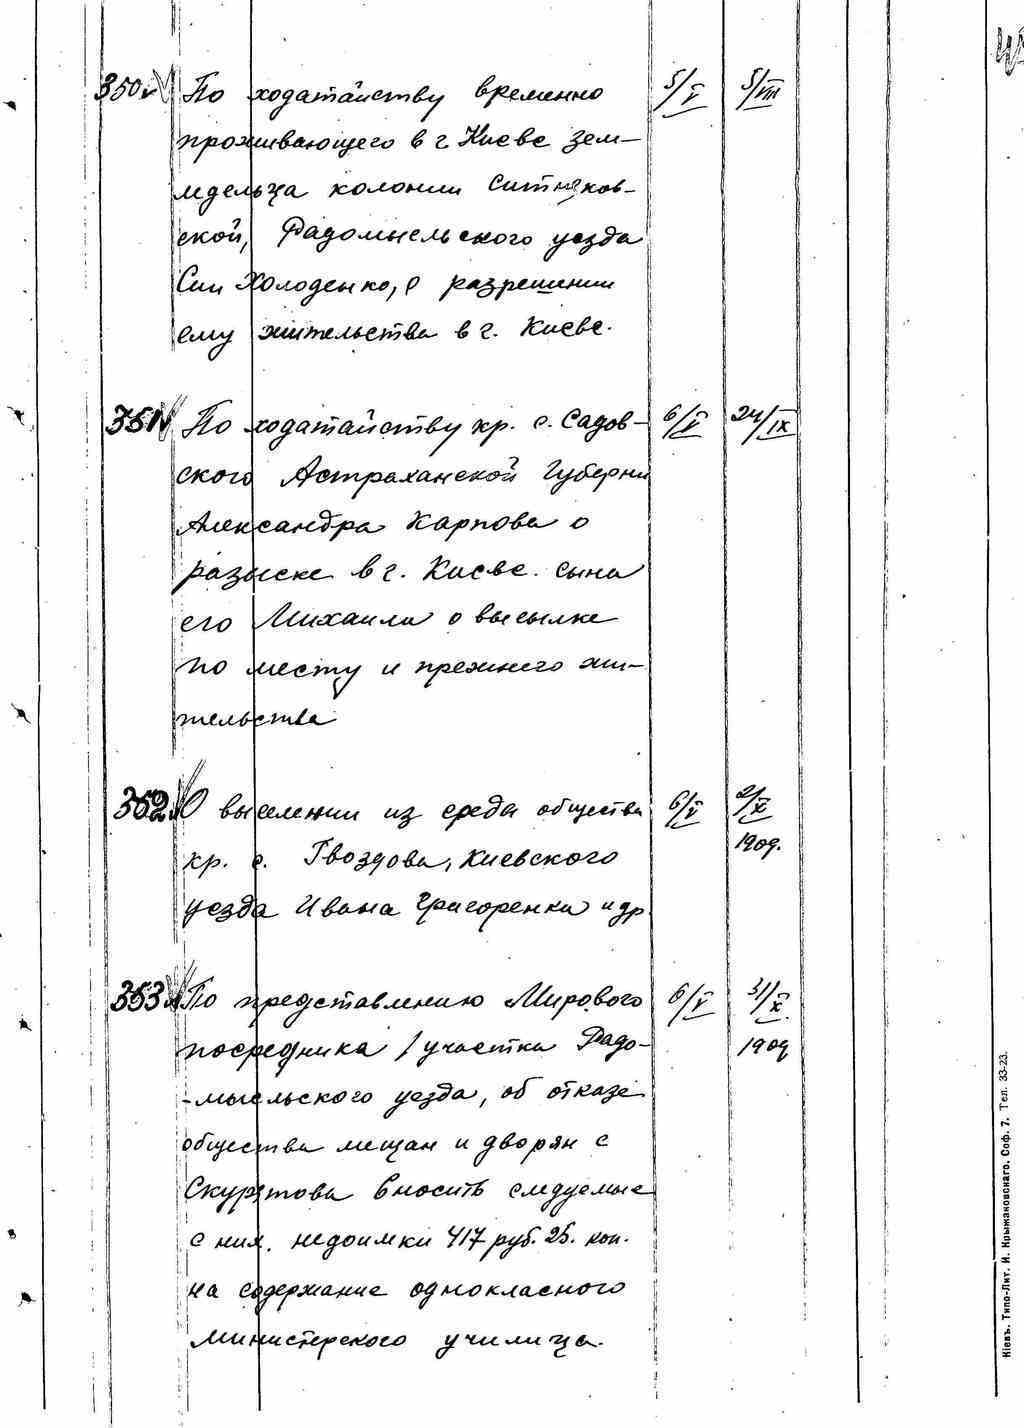 350 По ходатайству временно 5/V 5/VIII
проживающего в г Киеве зем-
лдельца колонии Ситняков-
ской, Радомысльского уезда
Сии Холоденко, о разрешении
ему жительства в г. Киеве.
351 По ходатайству кр. с. Садов- 6/V 24/IX
ского Астраханской Губерни
Александра Карпова о
розыске в г. Киеве. сына
его Михаила о высылке
по месту и прежнего жи-
тельства
352 О выселении из среды общества 6/V 2/X
1909.
кр. с. Гвоздова, Киевского
уезда Ивана Григоренка и др
353 По представлению Мирового 6/V 31/X
посредника 1 участка Радо- 1909
-мысльского уезда, об отказе
общества мещан и дворян с
вносить следуемые
с них. недоимки 417 руб. 25. коп.
на содержание однокласного
министерского училища.
Кіевъ. Типо-Лит. И. Крыжановскаго. Соф. 7. Тел. 33-23.